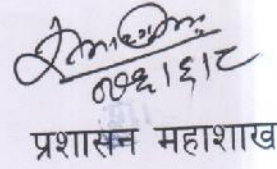 ०७६।६।८
प्रशासन महाशाख